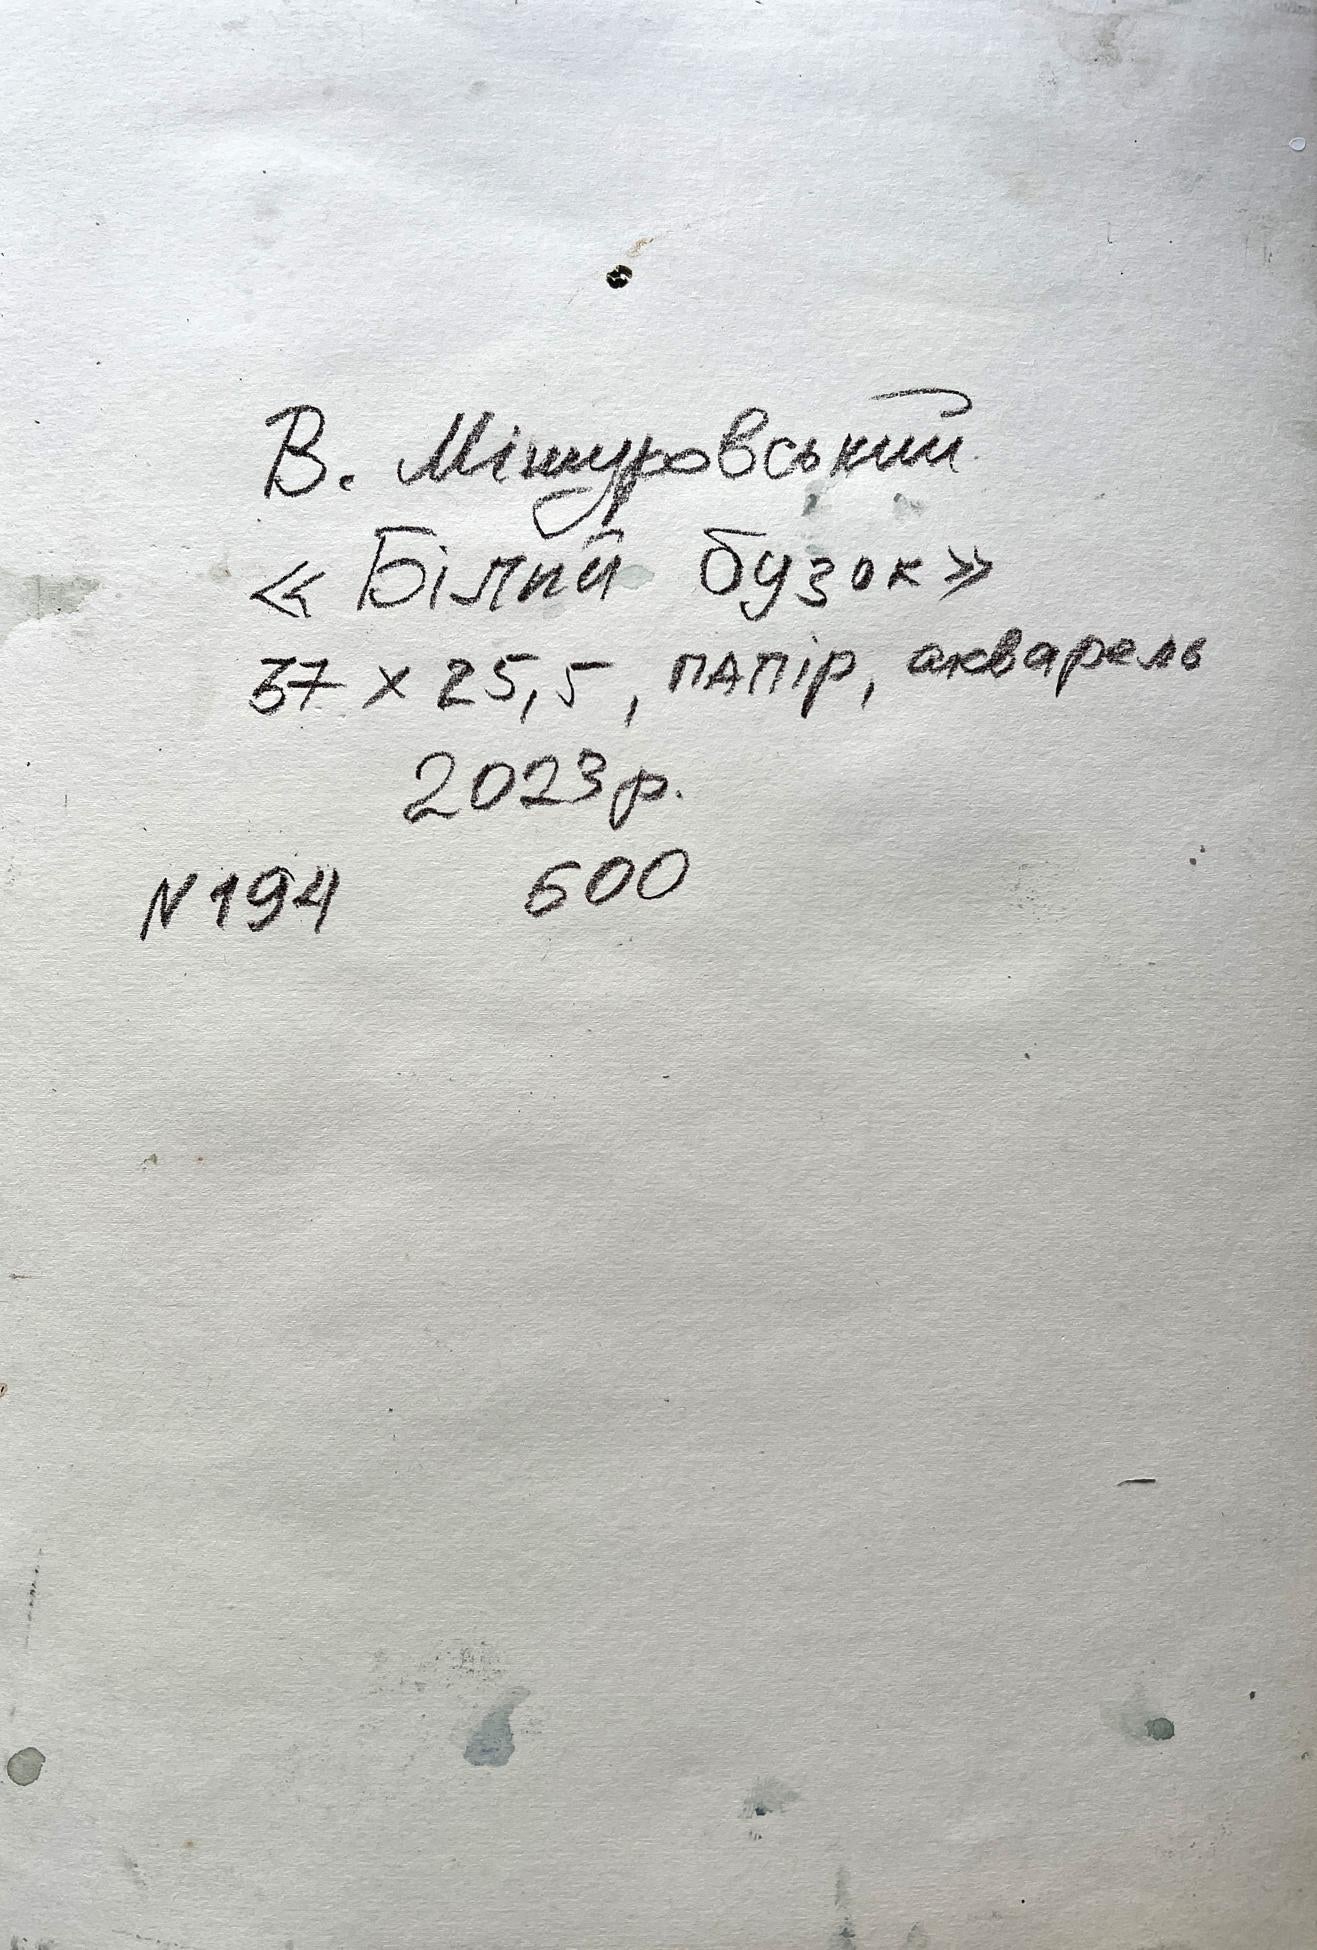 В. Мішуровський
«Білий бузок»
37 x 25,5, ПАПІр, акварель
2023р.
N194 600